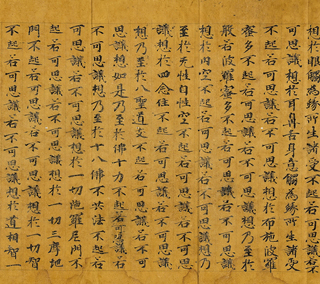 想於眼觸為緣所生諸受不起若可思議若不
可思議想於耳鼻舌身意觸為緣所生諸受
不起若可思議若不可思議想於布施波羅
蜜多不起若可思議若不可思議想乃至於
般若波羅蜜多不起若可思議若不可思議
想於內空不起若可思議若不可思議想乃
至於无性自性空不起若可思議若不可思
議想於四念住不起若可思議若不可思議
想乃至於八聖道支不起若可思議若不可
思議想如是乃至於佛十力不起若可思議若
不可思議想乃至於十八佛不共法不起若
可思議若不可思議想於一切陀羅尼門不
起若可思議若不可思議想於一切三摩地
門不起若可思議若不可思議想於一切智
不起若可思議若不可思議想於道相智一